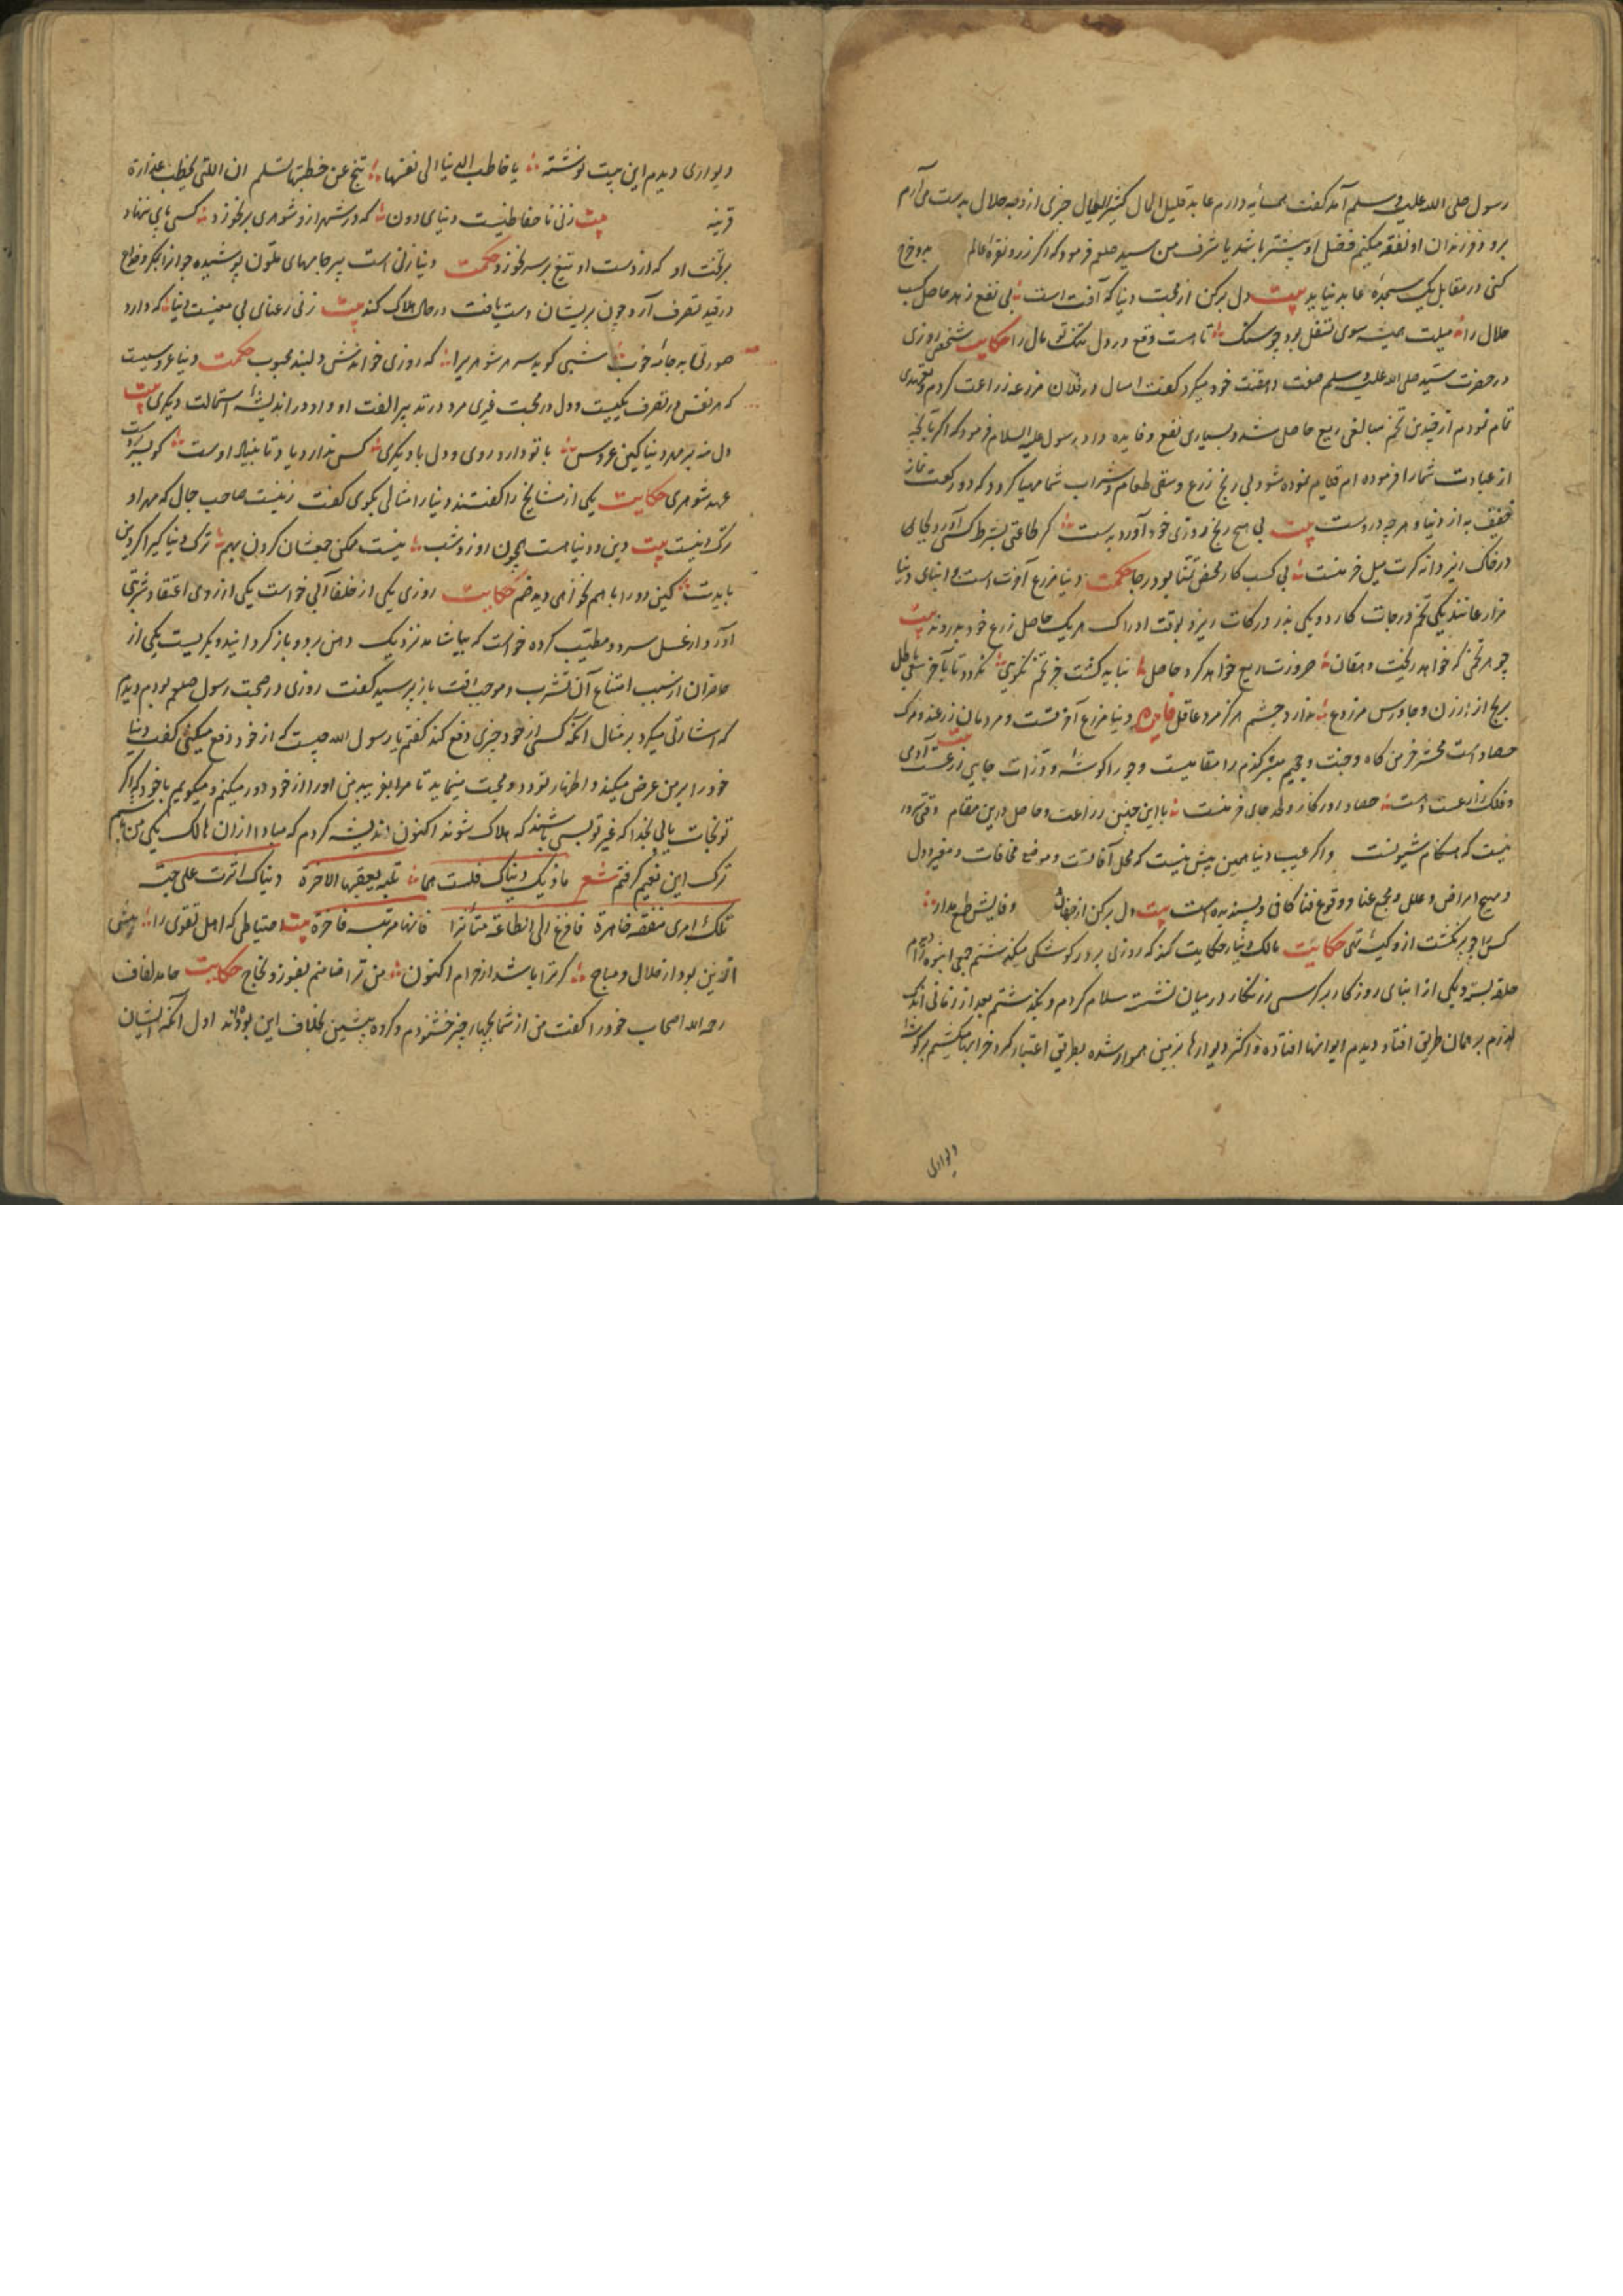 رسول صلی الله علیه و سلم آمد گفت همسایه دارم عابد قلیل المال کثیر العیال چیزی از وجه حلال بدست می آرم
برو و فرزندان او نفقه میکنم فضل او بیشتر باشد یا شرف من سید صلعم فرمود که اگر زر و نقره عالم بدو خرج
کنی در مقابل یک سجده عابد نیاید بیت دل برکن از محبت دنیا که آفت است بی نفع زهد حاصل کسب
حلال را میلت همیشه سوی تنقل بود چو سنگ تا هست وقع در دل تنگ تو مال را حکایت شخصی روزی
در حضرت سید صلی الله علیه و سلم صفت دهقنت خود میکرد گفت امسال در فلان مزرعه زراعت کردم و تعهدی
تمام نمودم از چندین تخم مبالغی ریع حاصل شد و بسیاری نفع و فایده داد رسول علیه السلام فرمود که اگر بآنچه
از عبادت شما را فرموده ام قیام نموده شود بی رنج زرع و سقی طعام و شراب شما مهیا گردد که دو رکعت نماز
خفیف به از دنیا و هر چه دروست بیت بی هیچ رنج روزی خود آورد بدست گر طاعتی بشرط کسی آورد بجای
در خاک ریز دانه گرت میل خرمنست بی کسب کار محض تمنا بود رجا حکمت دنیا مزرع آخرت است و ابنای دنیا
مزارعانند یکی تخم درجات کارد و یکی بذر درکات ریزد بوقت ادراک هر یک حاصل زرع خود بدروند بیت
چو هر تخمی که خواهد ریخت دهقان ضرورت ریع خواهد کرد حاصل نباید کشت جز تخم نکویی نگردد تا بآخر سعی باطل
برنج از ارزن و جاورس مزروع ندارد چشم هرگز مرد عاقل فایده دنیا مزرع آخرتست و مردمان زرعند و مرگ
حصاد است محشر خرمن گاه و جنت و جحیم مقر گندم را مقامیست و جو را گوشه و ذرات جایی زرعست آدمی
و فلک زارعست حصاد روزگار و لحد جای خرمنست با این چنین زراعت و حاصل درین مقام وقتی سرور
نیست که هنگام شیونست و اگر عیب دنیا همین بیش نیست که محل آفاتست و موضع مخافات و مغیر دول
و مهیج امراض و علل و مجمع عنا و وقوع فنا کافی و پسندیده است بیت دل برکن از جهان و وفایش طمع مدار
کس را چو برنگشت ازو کیسه تهی حکایت مالک دینار حکایت کند که روزی بر در کوشکی میگذشتم جمعی انبوه دیدم
حلقه بسته و یکی از ابنای روزگار بر کرسی زرنگار در میان نشسته سلام کردم و بگذشتم بعد از زمانی اندک
گذرم بر همان طریق افتاد دیدم ایوانها افتاده و اکثر دیوارها بزمین هموار شده بطریق اعتبار گرد خرابها میگشتم بر گوشه
دیواری
دیواری دیدم این بیت نوشته یا خاطب الدنیا الی نفسها تنح عن خطبتها تسلم ان اللتی تخطب غدارة
قریبة بیت زنی ناحفاظیست دنیای دون که در شهر ازو شوهری برنخورد کسی پای ننهاد
بر تخت او که از دست او تیغ بر سر نخورد حکمت دنیا زنی است پیر جامهای ملون پوشیده جوانرا بمکر و خداع
در قید تصرف آرد چون بر ایشان دست یافت در حال هلاک کند بیت زنی رعنای بی معنیست دنیا که دارد
صورتی به جامه خوب شبی گوید سر هر شوهری را که روزی خواندش دلبند محبوب حکمت دنیا عروسیست
که هر نفس در تصرف یکیست و دل در محبت غیری مرد در تدبیر الفت او و او در اندیشه استمالت دیگری بیت
دل منه بر مهر دنیا کین عروس با تو دارد روی و دل با دیگری کس ندارد یاد تا بنیاد اوست کو بسر بردست
عهد شوهری حکایت یکی از مشایخ را گفتند دنیا را مثالی بگوی گفت زنیست صاحب جمال که مهر او
ترک دنیست بیت دین و دنیا هست همچون روز و شب نیست ممکن جمعشان کردن بهم ترک دنیا گیر اگر دین
بایدت کین دو را با هم نخواهی دید ضم حکایت روزی یکی از خلفا آبی خواست یکی از روی اعتقاد شربتی
آورد از عسل سرد و مطیب کرده خواست که بیاشامد نزدیک دهن برد و باز گردانید و بگریست یکی از
حاضران از سبب امتناع آن شرب و موجب رقت باز پرسید گفت روزی در صحبت رسول صلعم بودم دیدم
که اشارتی میکرد بر مثال آنکه کسی از خود چیزی دفع کند گفتم یا رسول الله چیست که از خود دفع میکنی گفت دنیا
خود را بر من عرض میکند و اظهار تودد و محبت مینماید تا مرا بفریبد من او را از خود دور میکنم و میگویم با خود که اگر
تو نجات یابی بخدا که غیر تو بسی باشند که هلاک شوند اکنون اندیشه کردم که مبادا ازان هالک یکی من باشم
ترک این نعیم گرفتم شعر ما ذیک دنیاک فلست همانا تلبه یعقبها الاخرة دنیاک اثرت علی جنة
تلک امری صفقة خاسرة فافزغ الی الطاعة مستأثرا فانها مرتبة فاخرة بیت احتیاطی که اهل تقوی را پیش
ازین بود از حلال و مباح گر ترا باشد از حرام اکنون من ترا ضامنم بفوز و نجاح حکایت حامد لفاف
رحمه الله اصحاب خود را گفت من از شما بچهار چیز خشنودم و گروه پیشین بخلاف این بوده‌اند اول آنکه ایشان